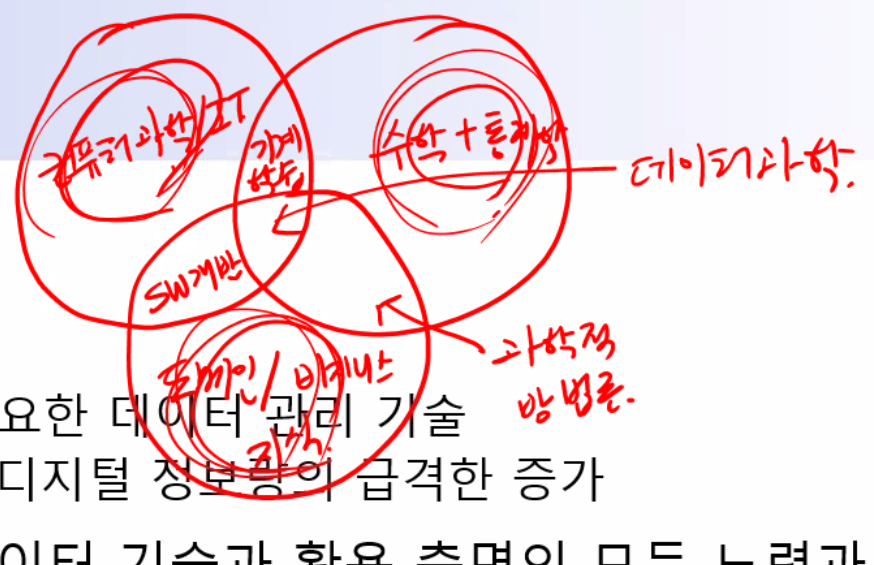 컴퓨터과학/IT
기계
학습
수학 + 통계학
데이터과학.
SW개발
과학적
방법론.
도메인 / 비지니스
지식.
요한 데이터 관리 기술
디지털 정보량의 급격한 증가
이터 기술과 활용 측면의 모든 노력과